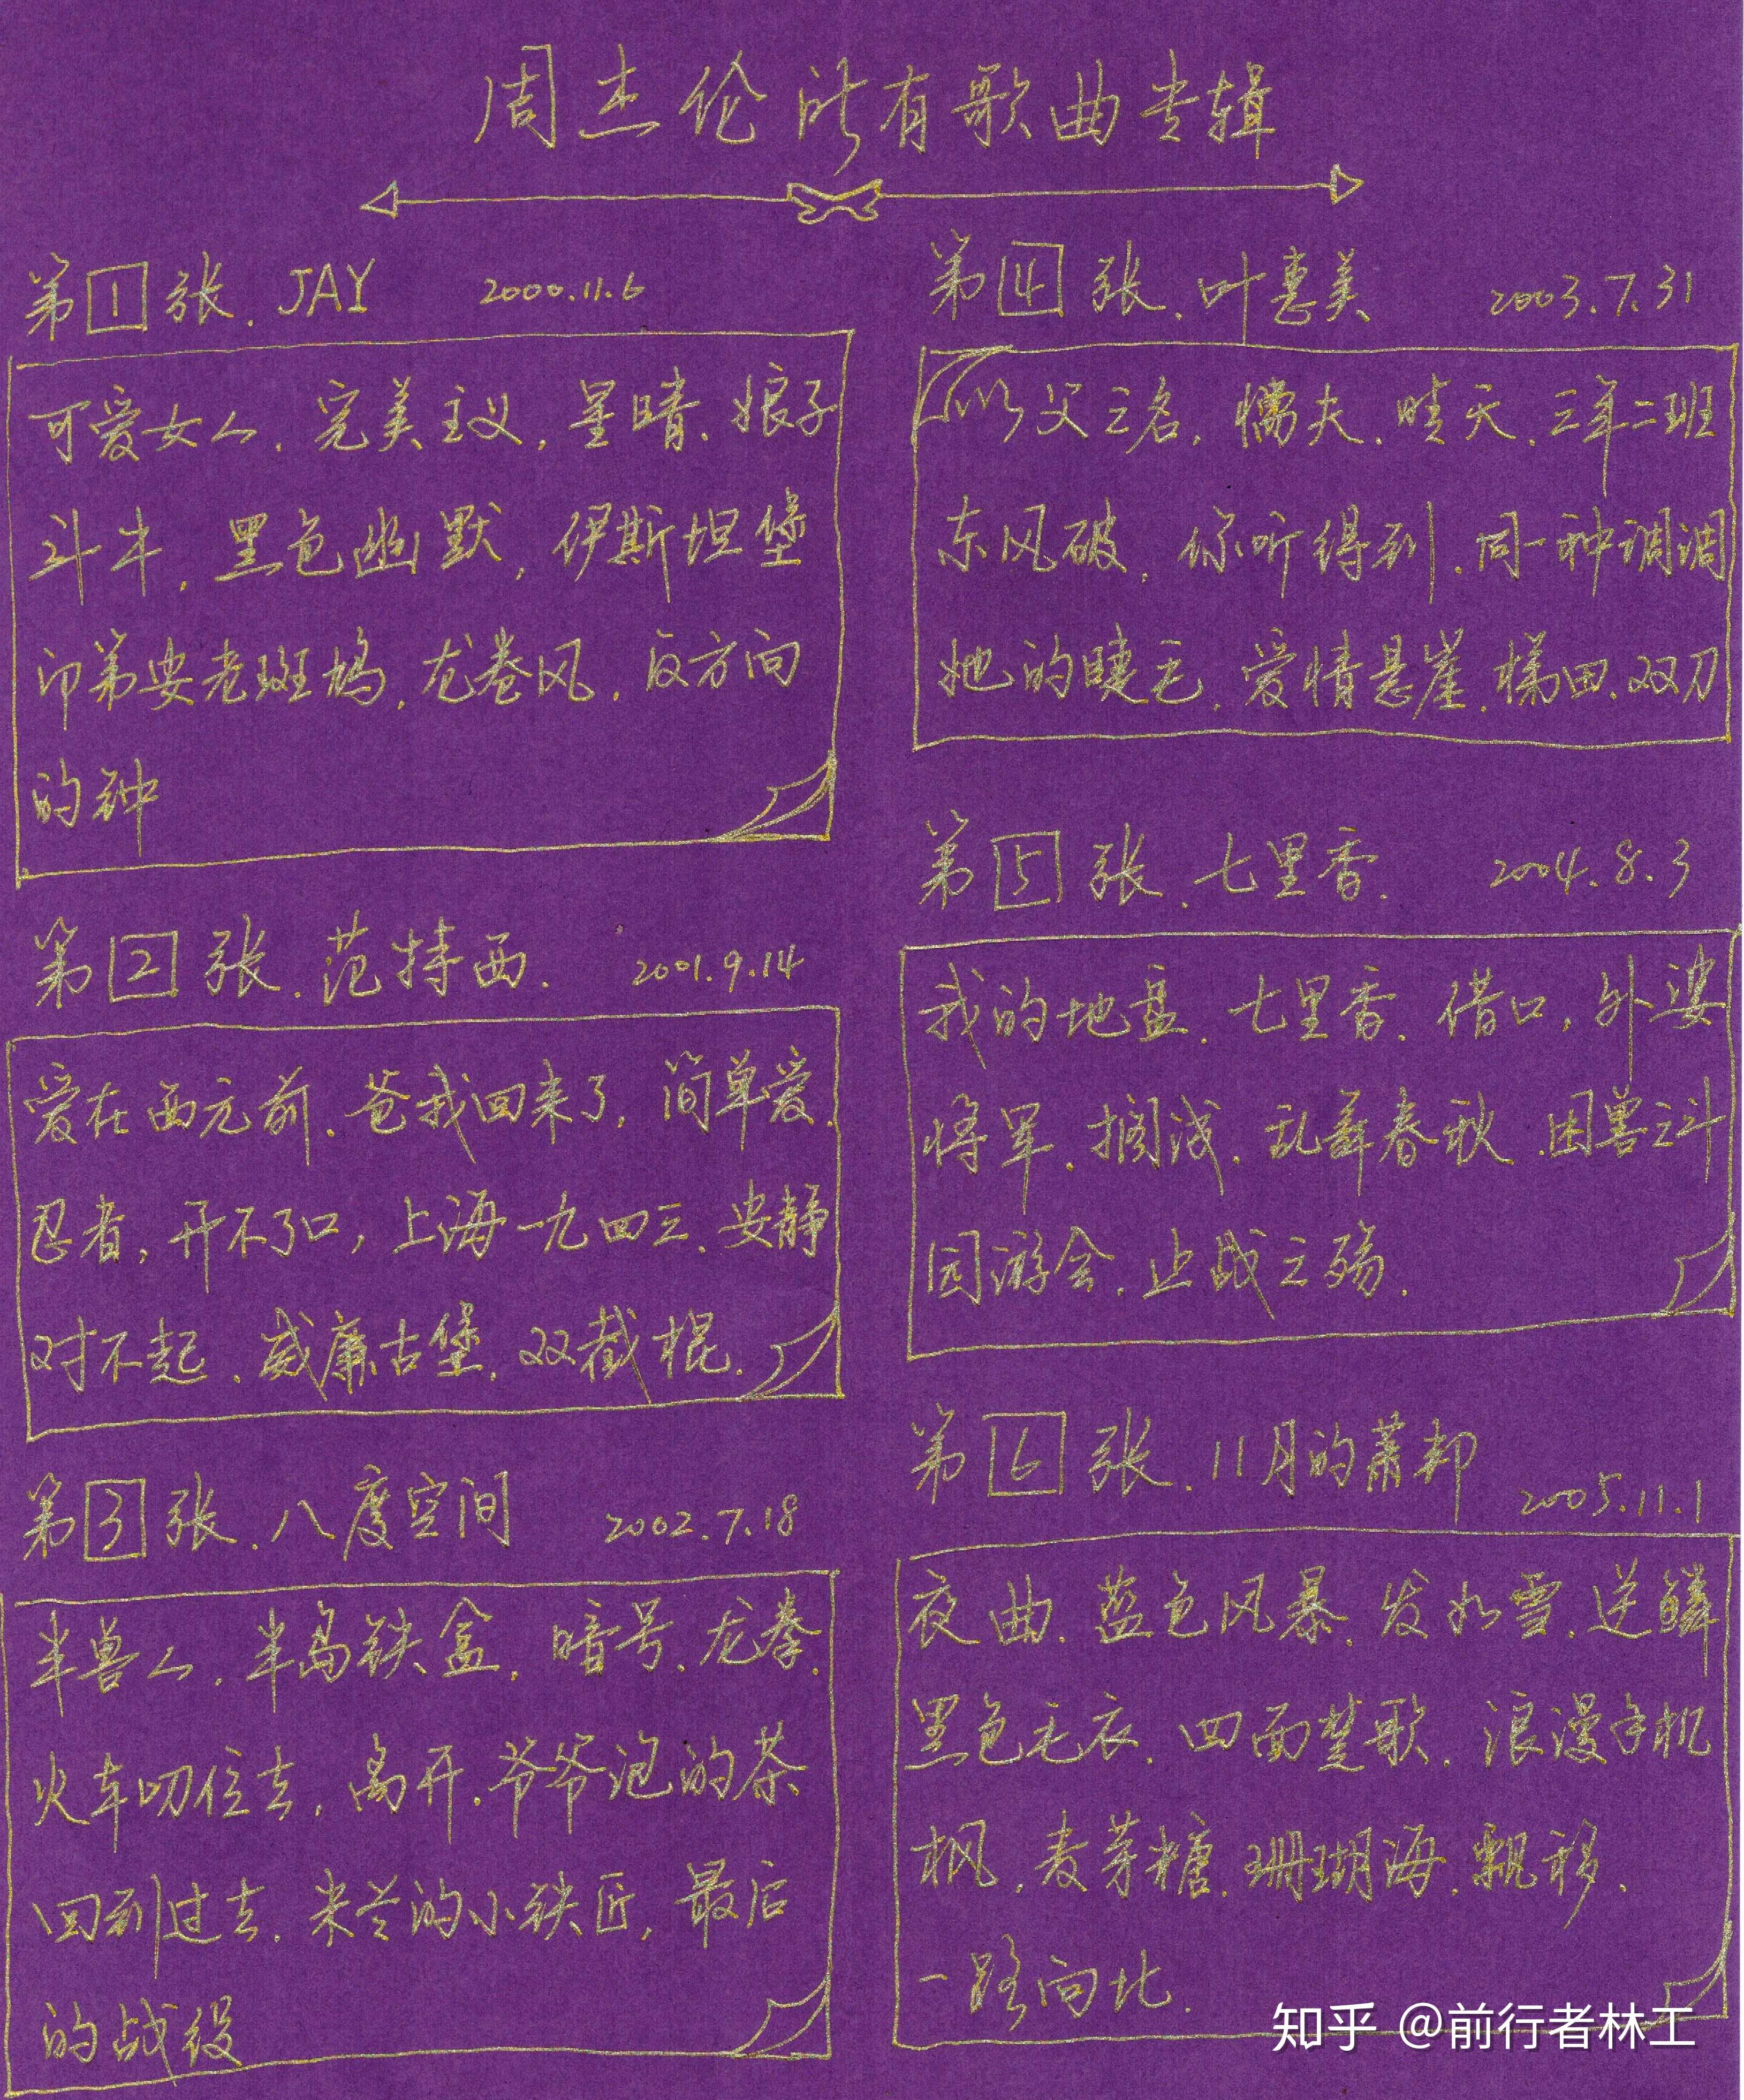 周杰伦所有歌曲专辑
第1张.JAY 2000.11.6
可爱女人.完美主义.星晴.娘子
斗牛.黑色幽默.伊斯坦堡
印第安老斑鸠.龙卷风.反方向
的钟
第2张.范特西. 2001.9.14
爱在西元前.爸我回来了,简单爱.
忍者,开不了口,上海一九四三.安静
对不起.威廉古堡.双截棍.
第3张.八度空间 2002.7.18
半兽人.半岛铁盒.暗号.龙拳.
火车叨位去.离开.爷爷泡的茶
回到过去.米兰的小铁匠,最后
的战役
第4张.叶惠美 2003.7.31
以父之名.懦夫.晴天.三年二班
东风破.你听得到.同一种调调
她的睫毛.爱情悬崖.梯田.双刀
第5张.七里香. 2004.8.3
我的地盘.七里香.借口.外婆
将军.搁浅.乱舞春秋.困兽之斗
园游会.止战之殇.
第6张.11月的萧邦 2005.11.1
夜曲.蓝色风暴.发如雪.逆鳞
黑色毛衣.四面楚歌.浪漫手机
枫.麦芽糖.珊瑚海.飘移.
一路向北.
知乎 @前行者林工